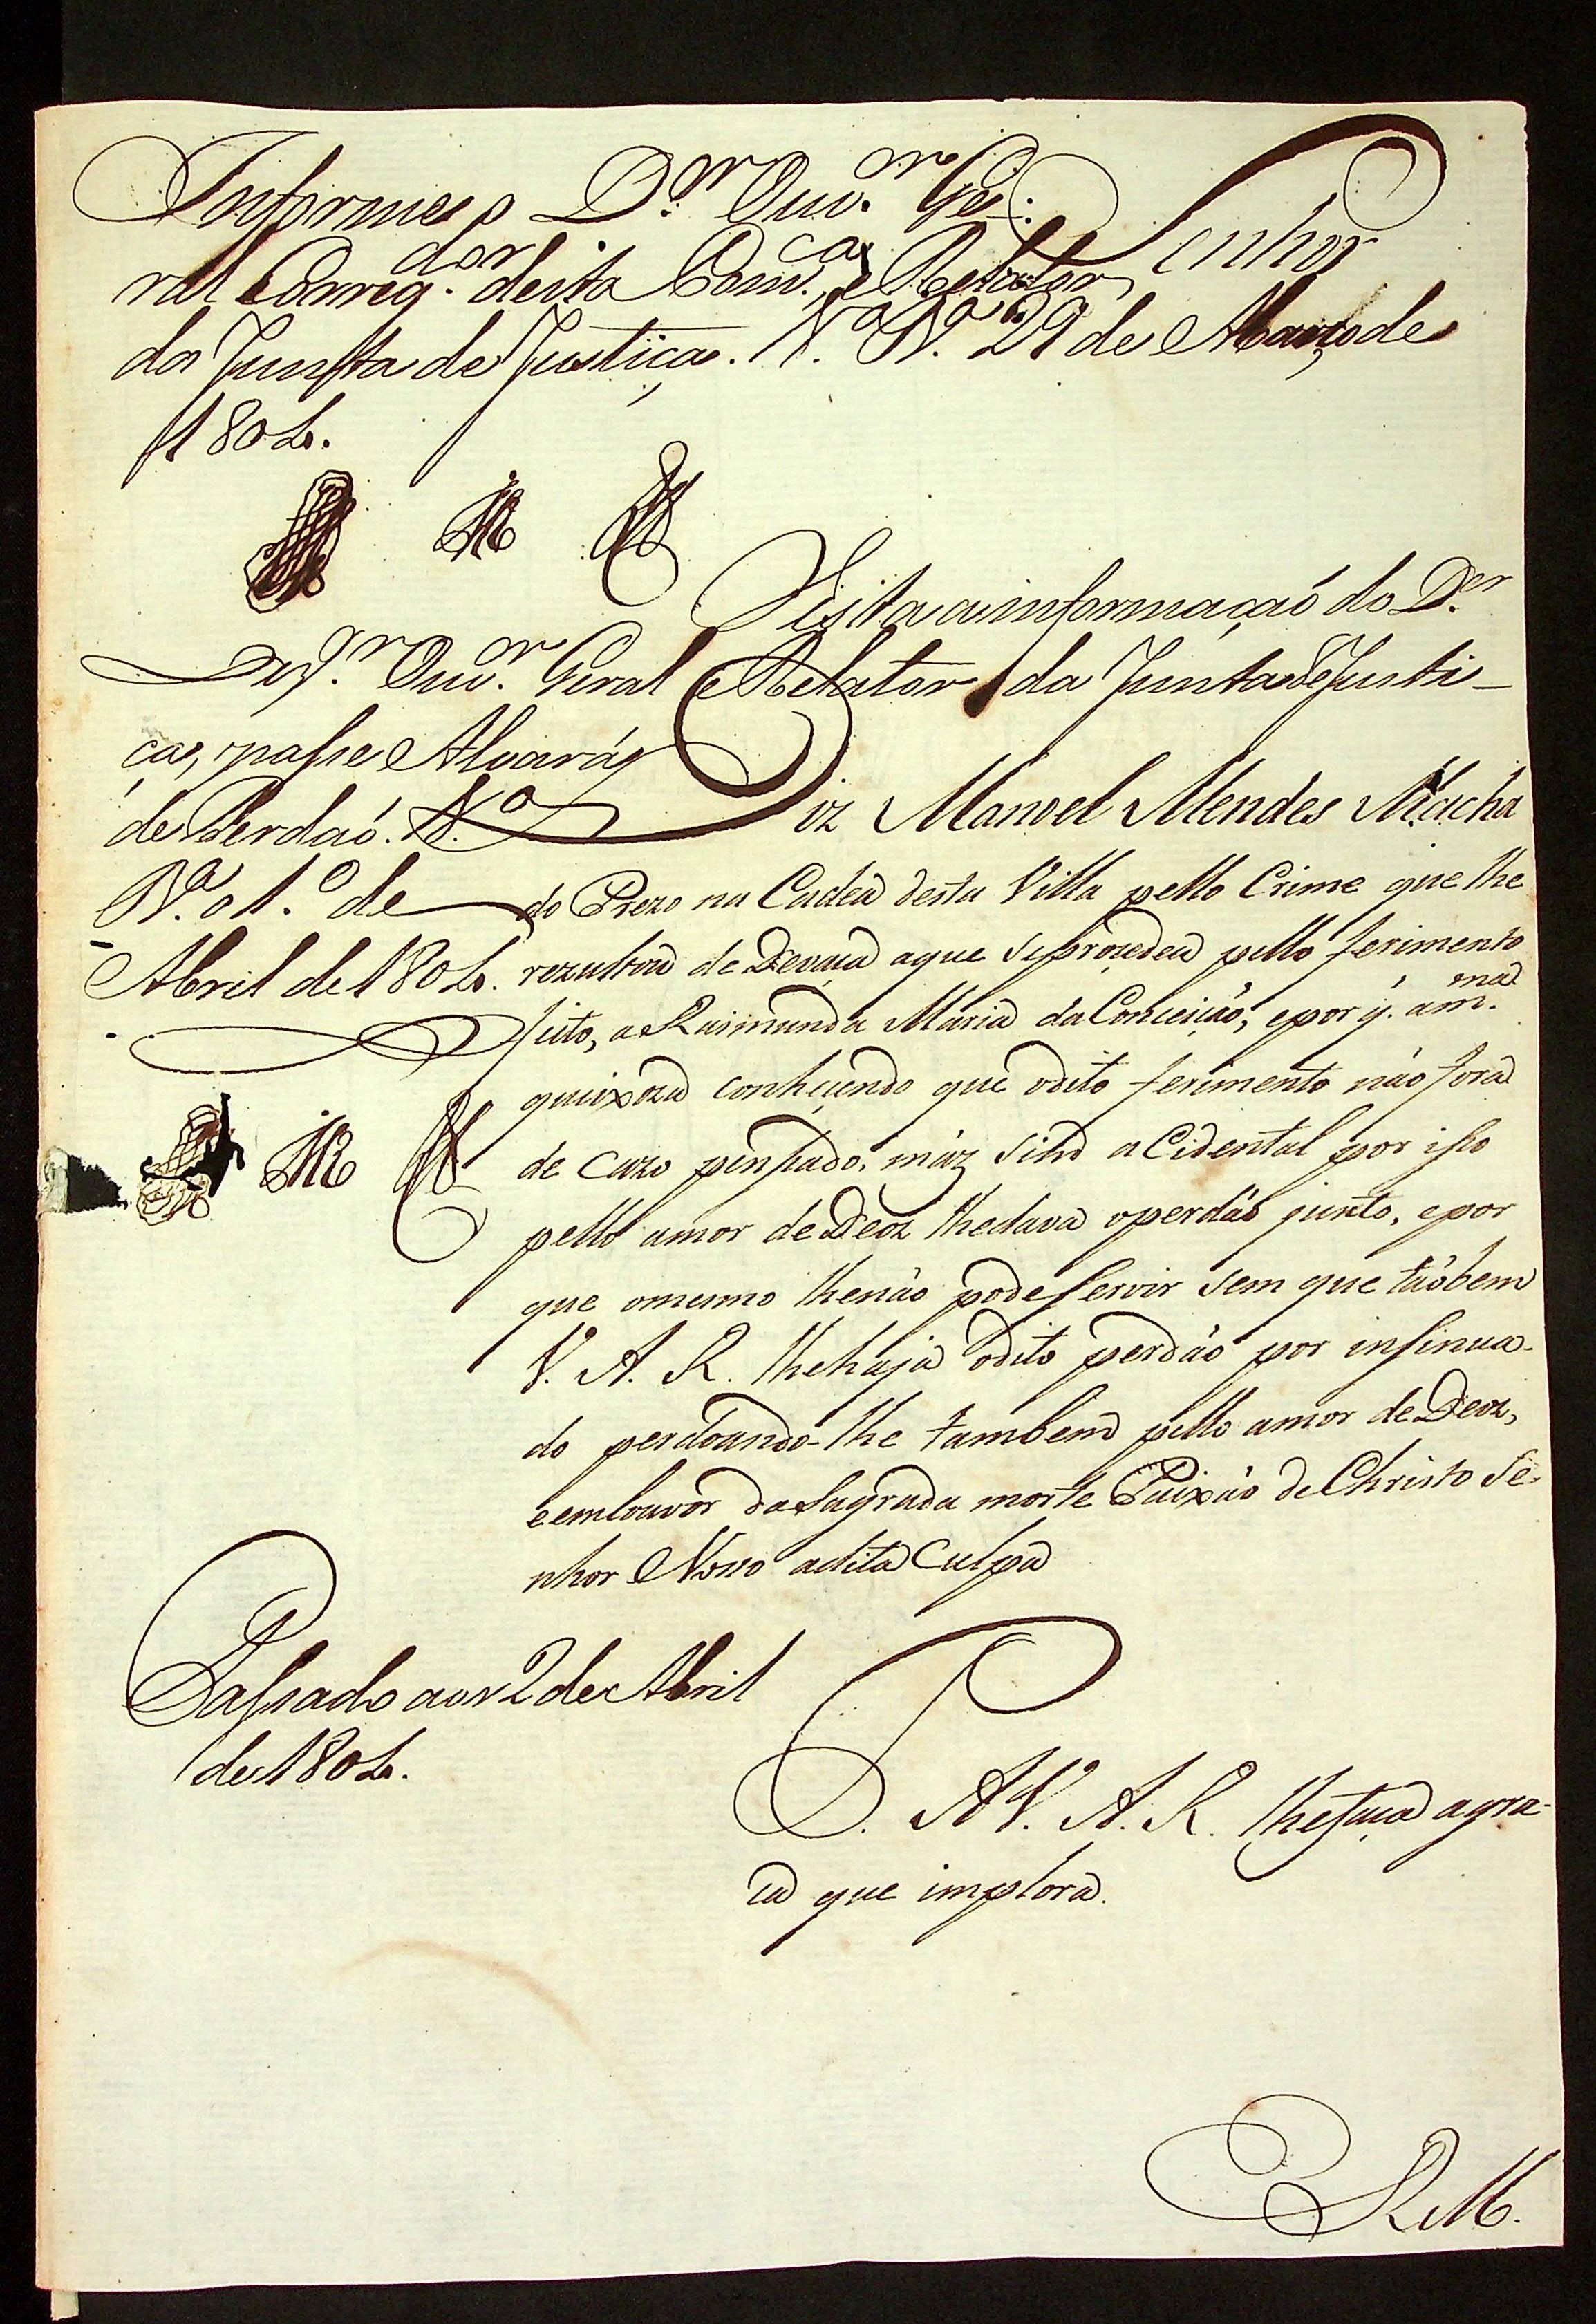 Informe o D.or Ouv.or Ge:
ral Correg.dor desta Com.ca, e Relator
da Junta de Justiça. V.a N.a 29 de Março de
1804.
Senhor
Vista a informação do D.or
Dez.or Ouv.or Geral e Relator da Junta de Justi-
ça, passe Alvará
de Perdaó. V.a
N.a o 1.o de
Abril de 1804.
Diz Manoel Mendes Macha
do Prezo na Cadea desta Villa pello Crime que lhe
rezultou de Devaça aque seprocedeu pello ferimento
feito, a Raimunda Maria da Conceição, epor q. am.ma
queixoza conheçendo que odito ferimento não fora
de cazo pensado, máz sim acidental por isso
pello amor de Deoz lhedava operdão junto, epor
que omesmo lhenão pode servir sem que tãobem
V. A. R. lhehaja odito perdão por insinua-
do perdoando-lhe tambem pello amor de Deoz,
eemlouvor da Sagrada morte Paixão de Christo Se-
nhor Nosso adita Culpa
Passado aos 2 de Abril
de 1804.
P. A V. A. R. lhefaça agra-
ça que implora.
E R M.